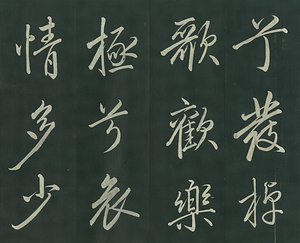 兮發棹
歌歡樂
極兮哀
情多少